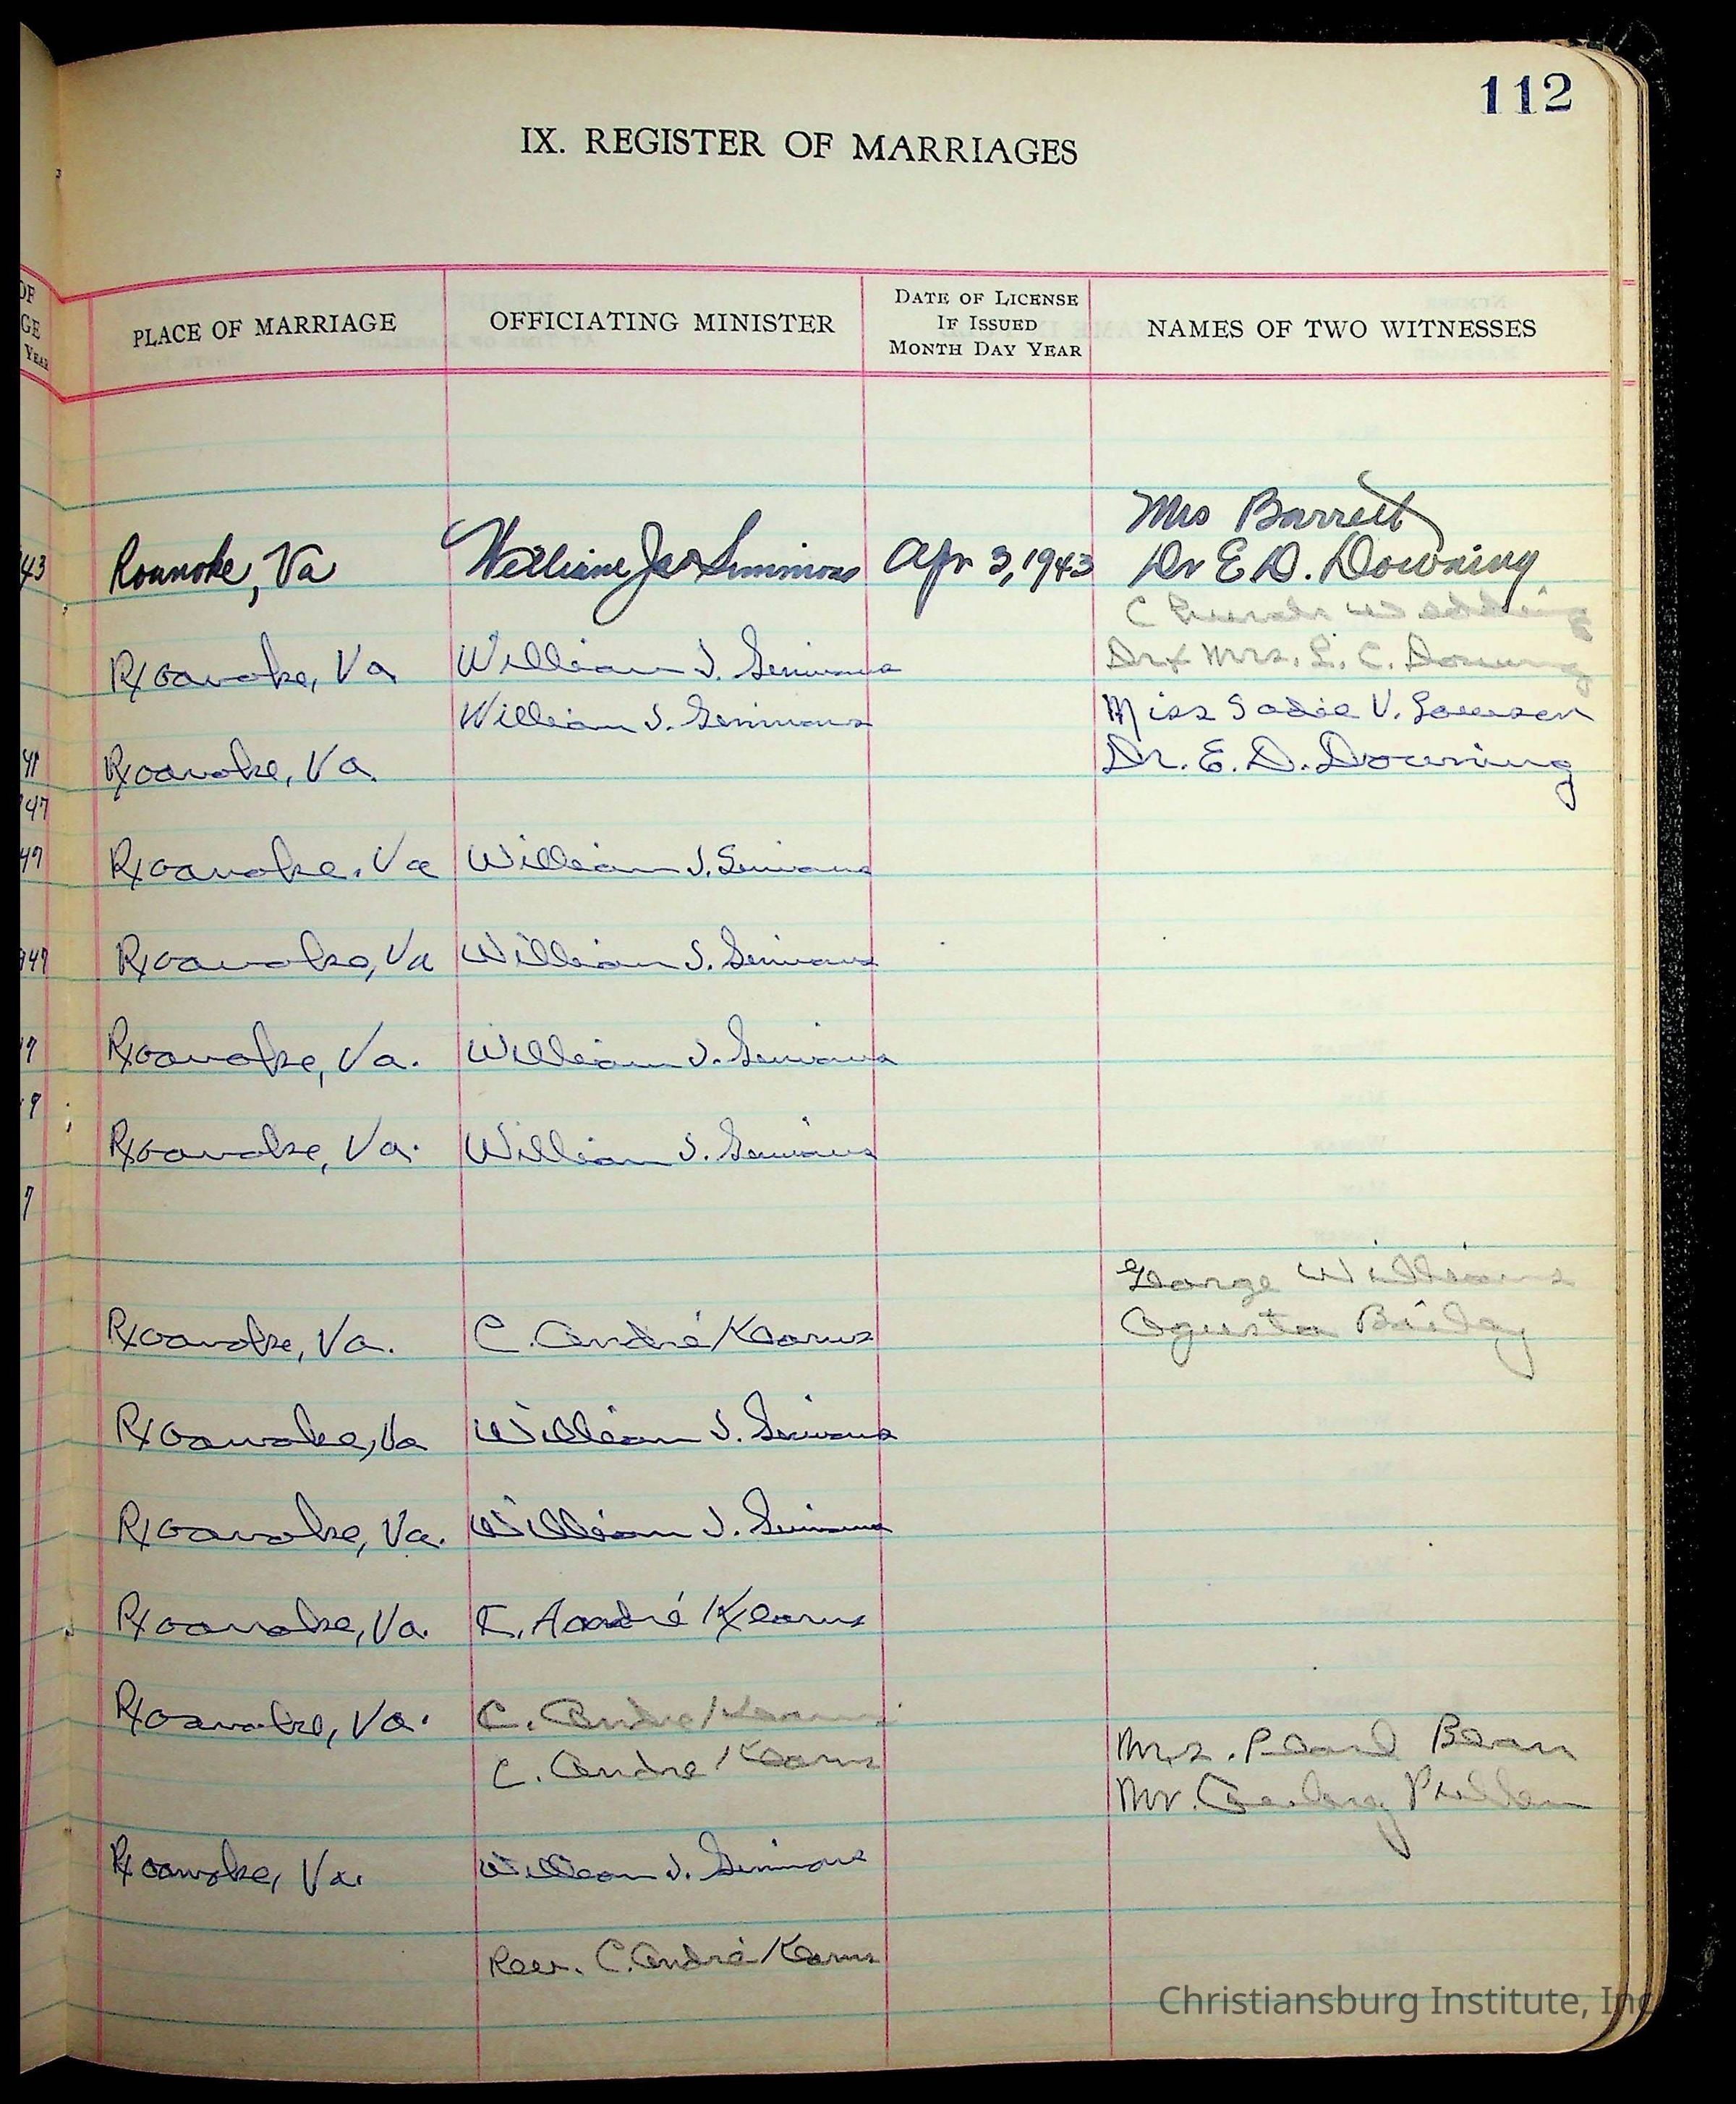 112
IX. REGISTER OF MARRIAGES
OF
GE
YEAR
PLACE OF MARRIAGE
OFFICIATING MINISTER
DATE OF LICENSE
IF ISSUED
MONTH DAY YEAR
NAMES OF TWO WITNESSES
Mrs Barrett
43 Roanoke, Va William Jas Simmons Apr 3, 1943 Dr E. D. Downing
Church Wedding
Roanoke, Va William J. Simmons Dr & Mrs. L. C. Downing
William J. Simmons Miss Sadie V. Lawson
Roanoke, Va. Dr. E. D. Downing
47
47 Roanoke, Va William J. Simmons
947 Roanoke, Va William J. Simmons
7 Roanoke, Va. William J. Simmons
Roanoke, Va. William J. Simmons
7
George Williams
Roanoke, Va. C. André Kearns Ogusta Bailey
Roanoke, Va William J. Simmons
Roanoke, Va. William J. Simmons
Roanoke, Va. C. André Kearns
Roanoke, Va. C. Andre Kearns
C. Andre Kearns Mrs. Pearl Bean
Mr.
Roanoke, Va. William J. Simmons
Rev. C. André Kearns
Christiansburg Institute, Inc